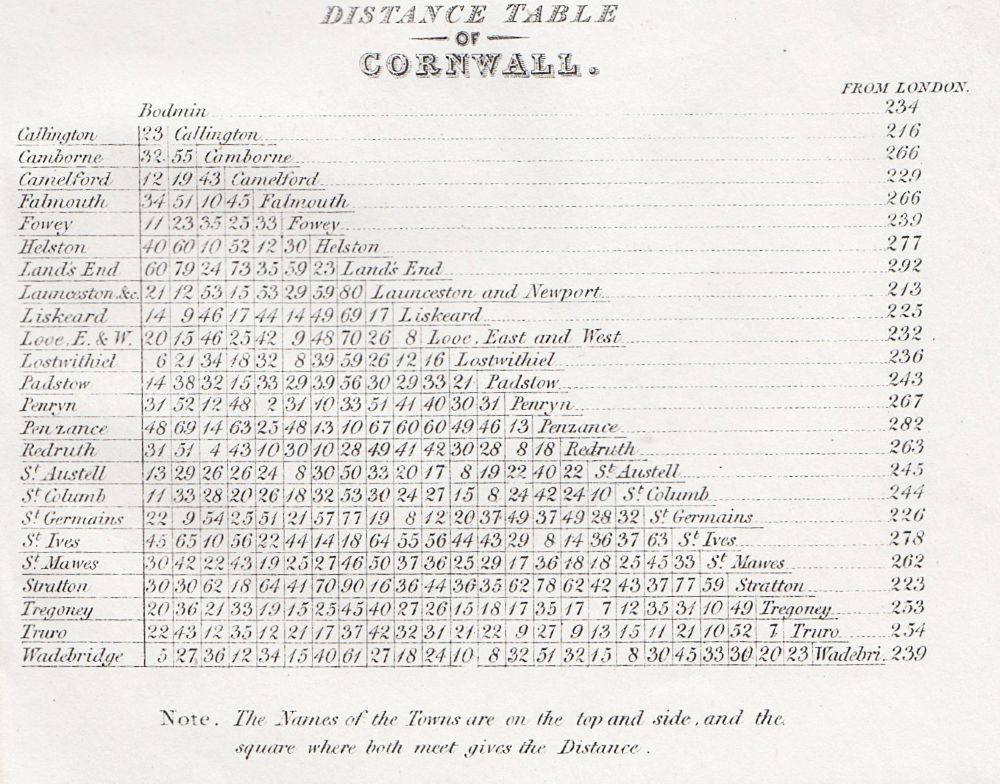 DISTANCE TABLE
OF
CORNWALL.
FROM LONDON.
Bodmin 234
Callington 23 Callington 216
Camborne 32 55 Camborne 266
Camelford 12 19 43 Camelford 229
Falmouth 34 51 10 45 Falmouth 266
Fowey 11 23 35 25 33 Fowey 239
Helston 40 60 10 52 12 30 Helston 277
Land's End 60 79 24 73 35 59 23 Land's End 292
Launceston &c. 21 12 53 15 53 29 59 80 Launceston and Newport 213
Liskeard 14 9 46 17 44 14 49 69 17 Liskeard 225
Looe, E. & W. 20 15 46 25 42 9 48 70 26 8 Looe, East and West 232
Lostwithiel 6 21 34 18 32 8 39 59 26 12 16 Lostwithiel 236
Padstow 14 38 32 15 33 29 39 56 30 29 33 21 Padstow 243
Penryn 31 52 12 48 2 31 10 33 51 41 40 30 31 Penryn 267
Penzance 48 69 14 63 25 48 13 10 67 60 60 49 46 13 Penzance 282
Redruth 31 51 4 43 10 30 10 28 49 41 42 30 28 8 18 Redruth 263
St Austell 13 29 26 26 24 8 30 50 33 20 17 8 19 22 40 22 St Austell 245
St Columb 11 33 28 20 26 18 32 53 30 24 27 15 8 24 42 24 10 St Columb 244
St Germains 22 9 54 25 51 21 57 77 19 8 12 20 37 49 37 49 28 32 St Germains 226
St Ives 45 65 10 56 22 44 14 18 64 55 56 44 43 29 8 14 36 37 63 St Ives 278
St Mawes 30 42 22 43 19 25 27 46 50 37 36 25 29 17 36 18 18 25 45 33 St Mawes 262
Stratton 30 30 62 18 64 41 70 90 16 36 44 36 35 62 78 62 42 43 37 77 59 Stratton 223
Tregoney 20 36 21 33 19 15 25 45 40 27 26 15 18 17 35 17 7 12 35 31 10 49 Tregoney 253
Truro 22 43 12 35 12 21 17 37 42 32 31 21 22 9 27 9 13 15 11 21 10 52 7 Truro 254
Wadebridge 5 27 36 12 34 15 40 61 27 18 24 10 8 32 51 32 15 8 30 45 33 30 20 23 Wadebri. 239
Note. The Names of the Towns are on the top and side, and the
square where both meet gives the Distance.